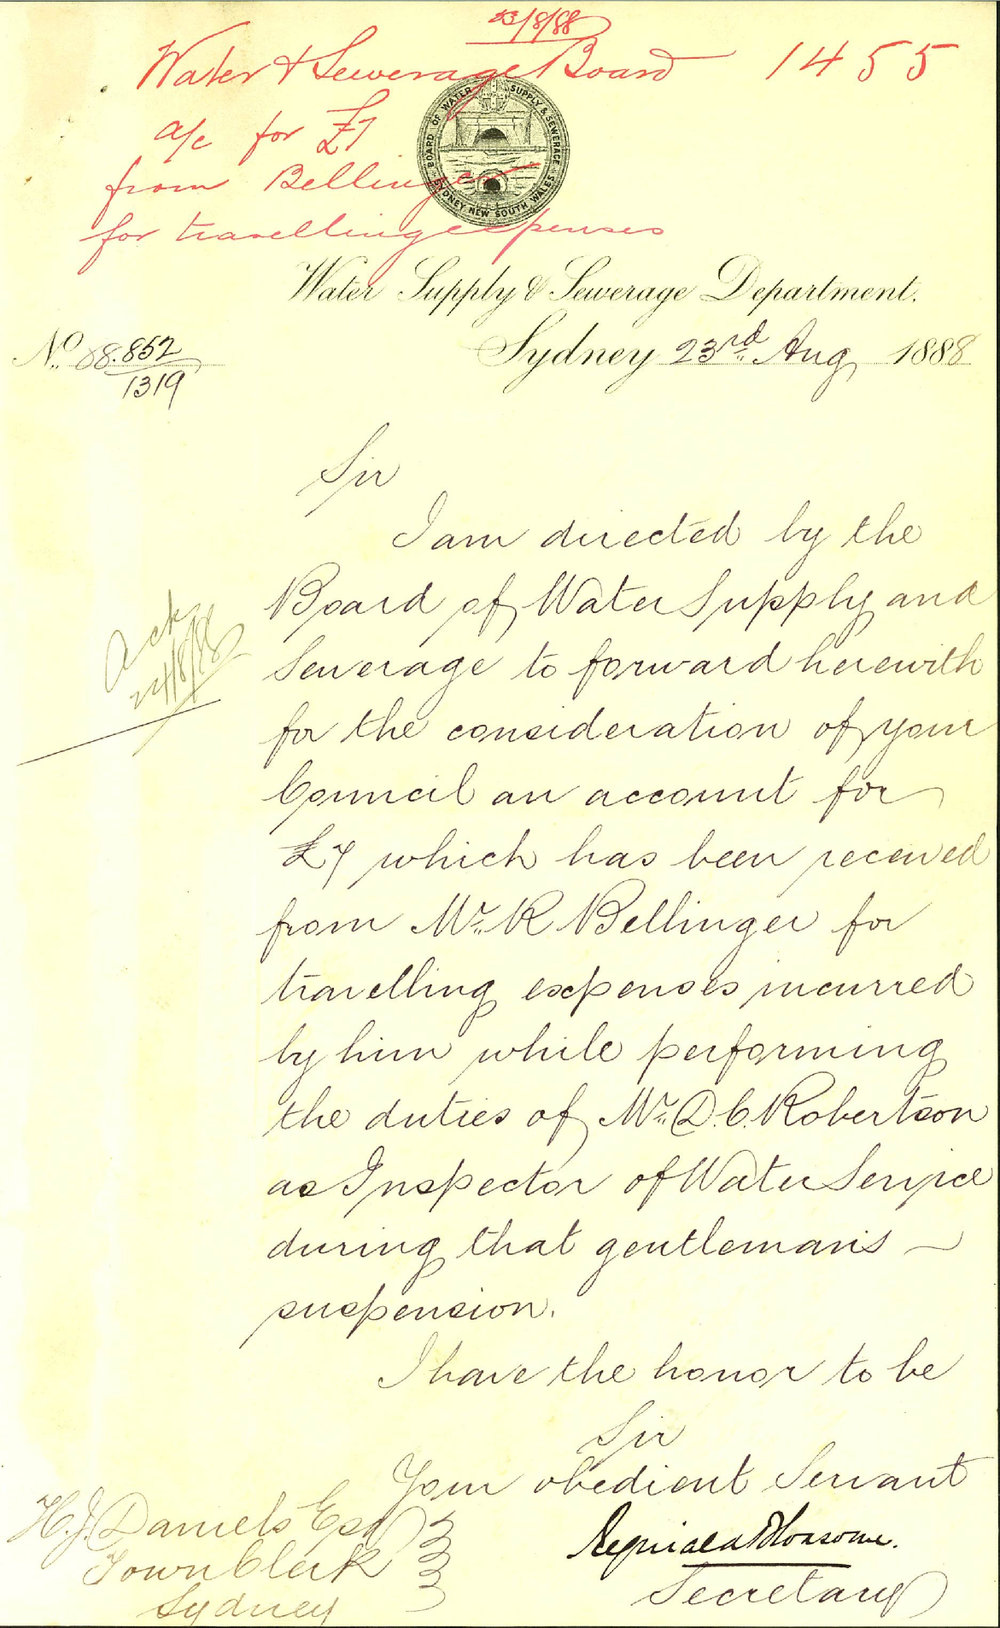 23/8/88
Water & Sewerage Board 1455
a/c for £7
from Bellinger
for travelling expenses
BOARD OF WATER SUPPLY & SEWERAGE
SYDNEY NEW SOUTH WALES
Water Supply & Sewerage Department.
No. 88.852
1319
Sydney 23rd Aug 1888
Sir
I am directed by the
Board of Water Supply and
Sewerage to forward herewith
for the consideration of your
Council an account for
£7 which has been received
from Mr. R Bellinger for
travelling expenses incurred
by him while performing
the duties of Mr. D. C. Robertson
as Inspector of Water Service
during that gentleman's
suspension.
Ack
24/8/88
I have the honor to be
Sir
Your obedient Servant
Secretary
H. J. Daniels Esq
Town Clerk
Sydney